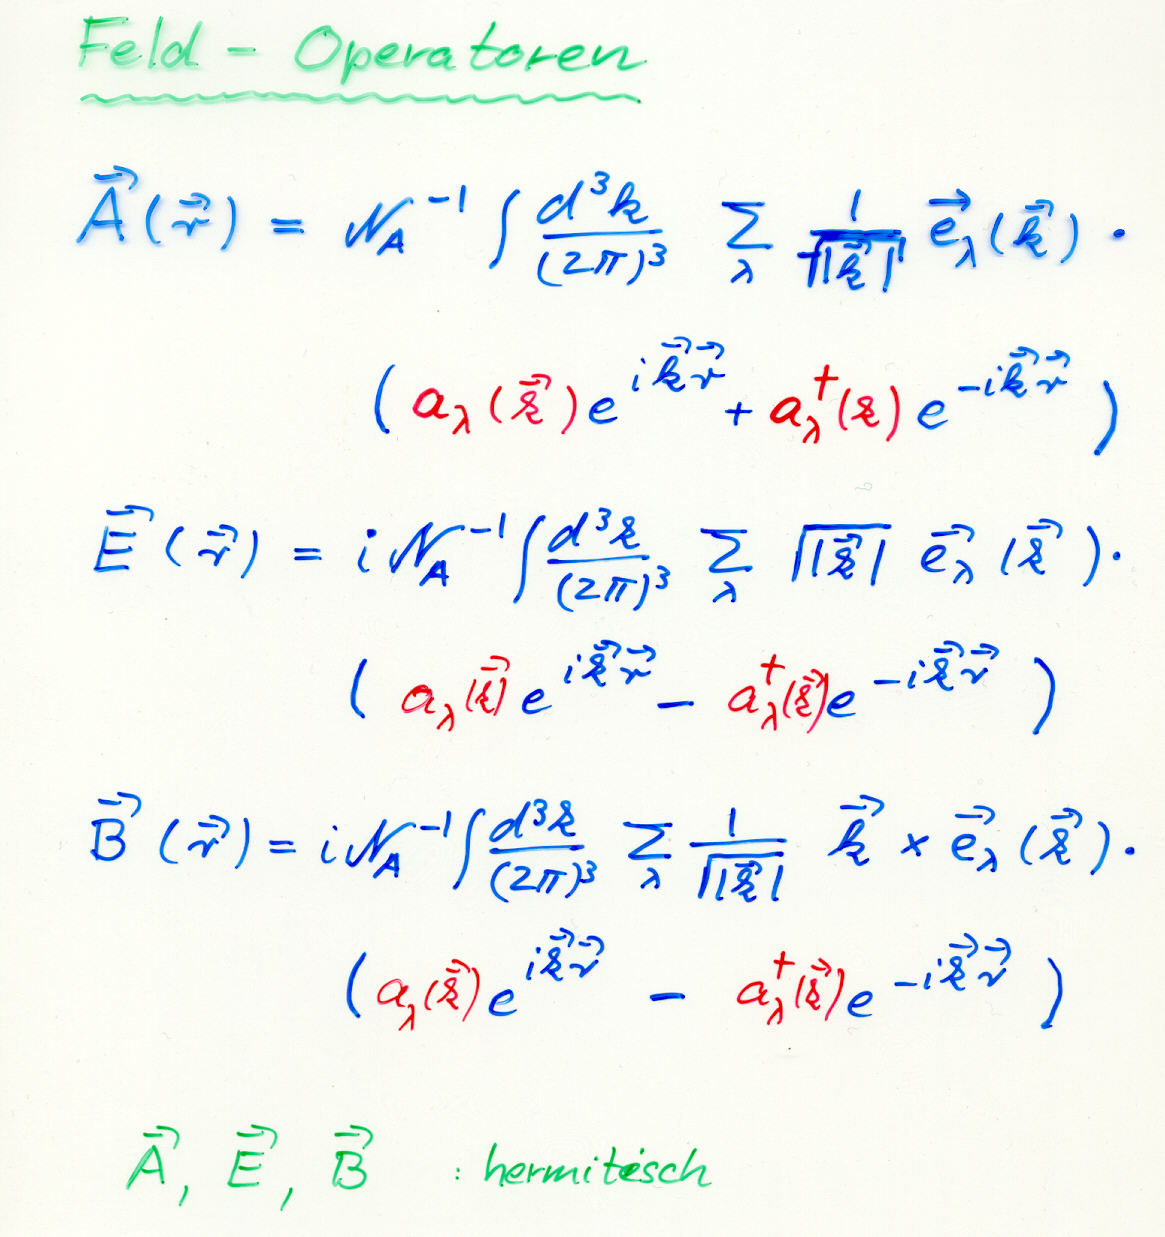 Feld - Operatoren
$\vec{A}(\vec{r}) = \mathcal{N}_A^{-1} \int \frac{d^3k}{(2\pi)^3} \sum_\lambda \frac{1}{\sqrt{|\vec{k}|}} \vec{e}_\lambda(\vec{k}) \cdot$
$( a_\lambda(\vec{k}) e^{i\vec{k}\vec{r}} + a_\lambda^\dagger(k) e^{-i\vec{k}\vec{r}} )$
$\vec{E}(\vec{r}) = i \mathcal{N}_A^{-1} \int \frac{d^3k}{(2\pi)^3} \sum_\lambda \sqrt{|\vec{k}|} \vec{e}_\lambda(\vec{k}) \cdot$
$( a_\lambda(\vec{k}) e^{i\vec{k}\vec{r}} - a_\lambda^\dagger(\vec{k}) e^{-i\vec{k}\vec{r}} )$
$\vec{B}(\vec{r}) = i \mathcal{N}_A^{-1} \int \frac{d^3k}{(2\pi)^3} \sum_\lambda \frac{1}{\sqrt{|\vec{k}|}} \vec{k} \times \vec{e}_\lambda(\vec{k}) \cdot$
$( a_\lambda(\vec{k}) e^{i\vec{k}\vec{r}} - a_\lambda^\dagger(\vec{k}) e^{-i\vec{k}\vec{r}} )$
$\vec{A}, \vec{E}, \vec{B}$ : hermitisch